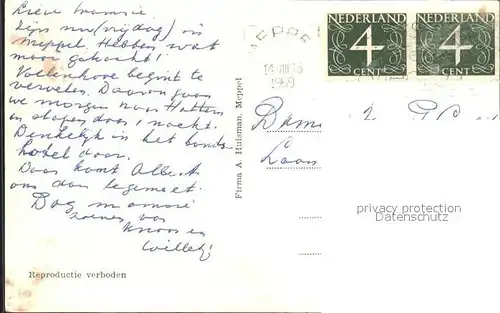 Lieve mammie
Zijn nu (vrijdag) in
Meppel. Hebben wat
moois gekocht!
Vollenhove begint te
vervelen. Daarom gaan
we morgen naar Hattem
en slapen daar 1 nacht.
Denkelijk in het
hotel daar.
Daar komt Albert
ons dan tegemoet.
Dag mammie
zoenen van
Knoos en
Willetj
Reproductie verboden
Firma A. Huisman, Meppel
MEPPEL
1959
NEDERLAND
4
CENT
NEDERLAND
4
CENT
privacy protection
Datenschutz